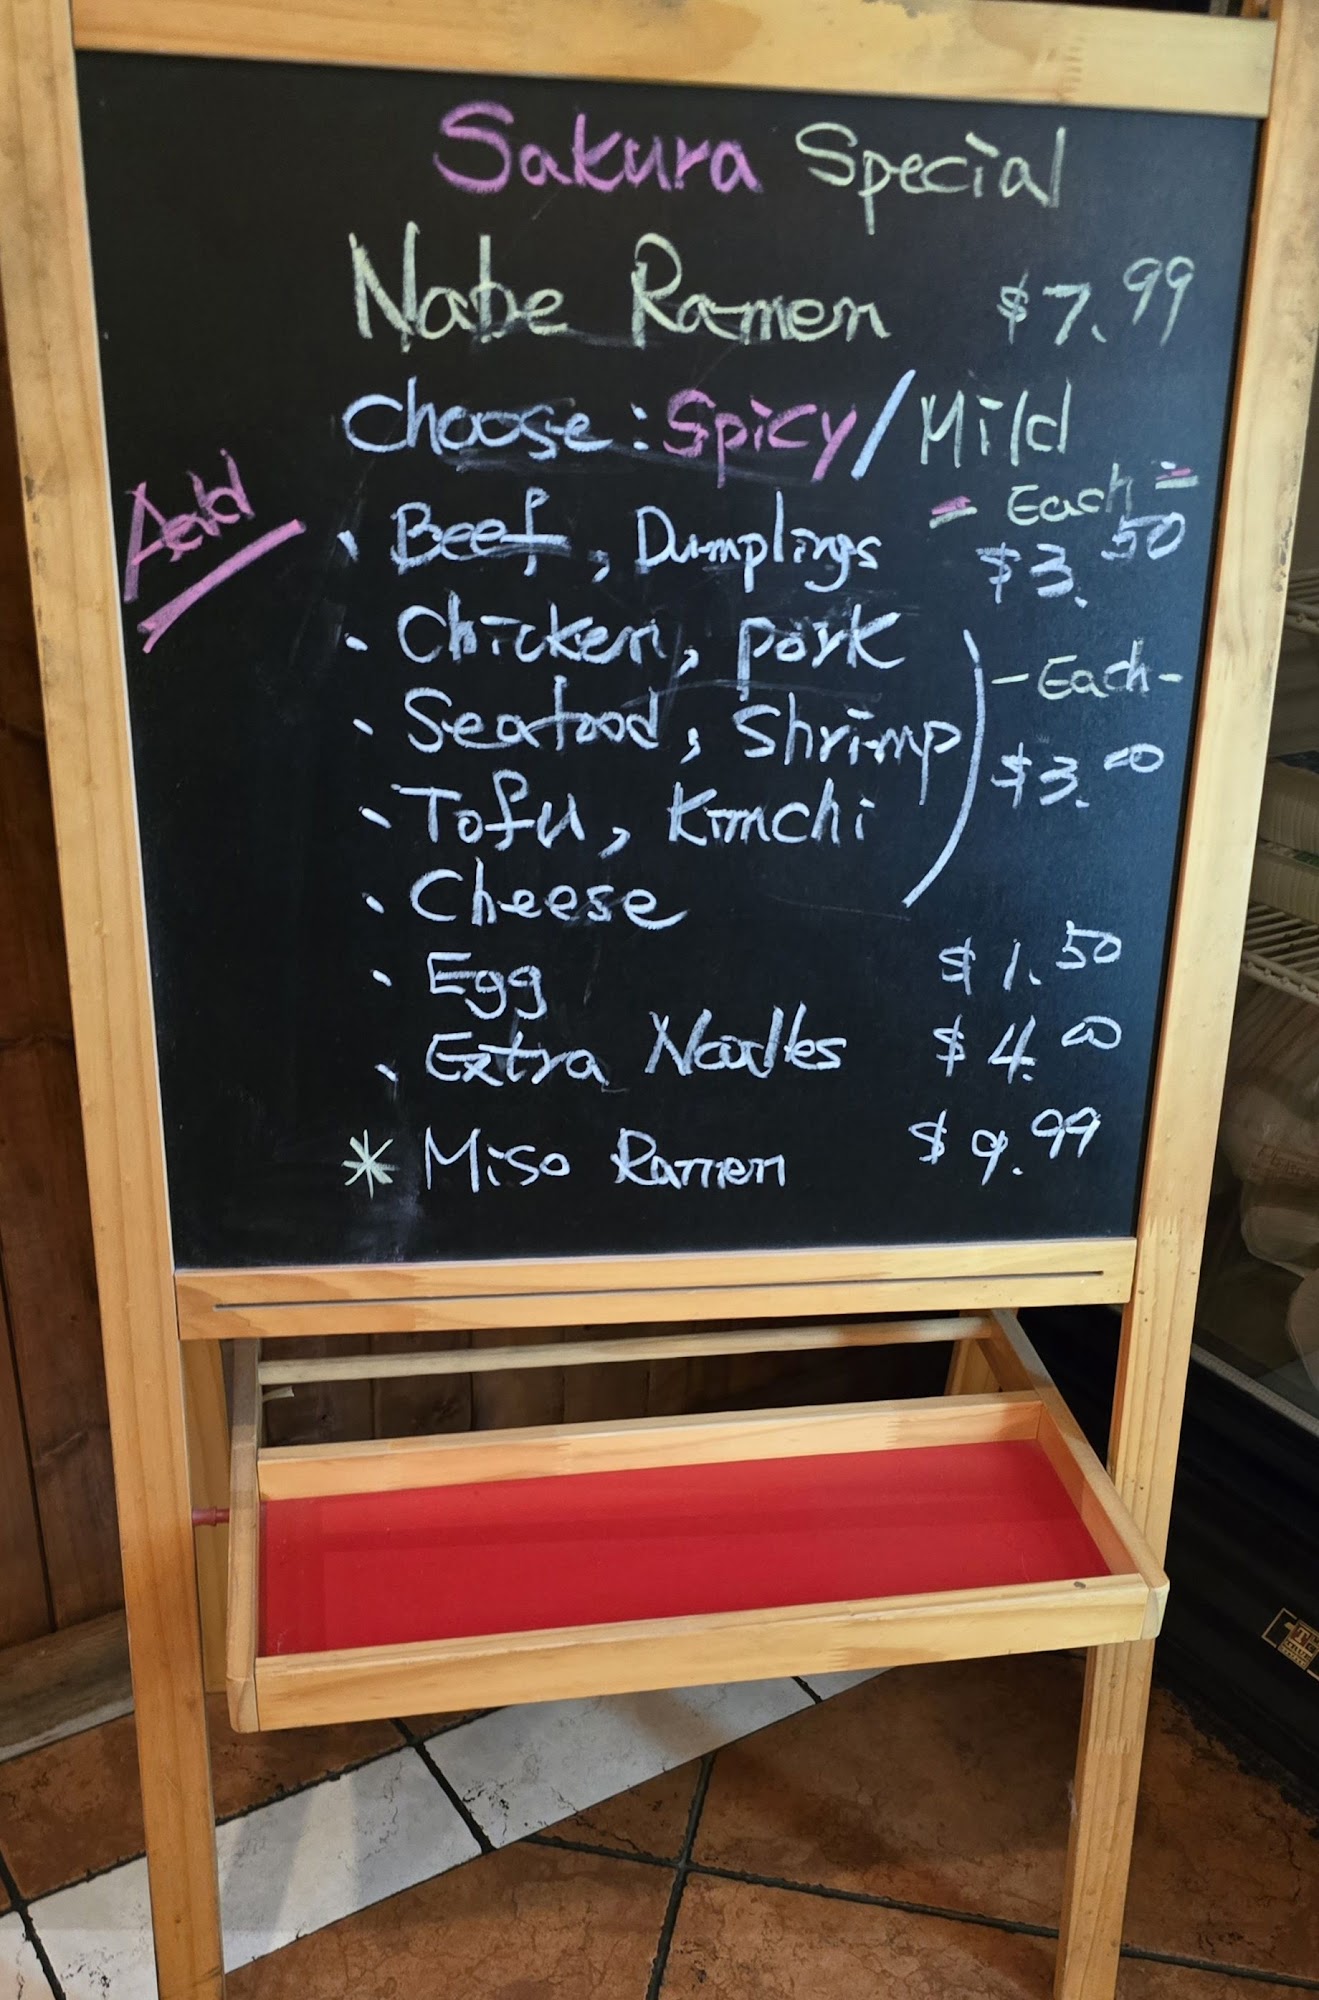 Sakura Special
Nabe Ramen $7.99
Choose: Spicy/Mild
Add
- Each -
• Beef, Dumplings $3.50
• Chicken, Pork
- Each -
• Seafood, Shrimp $3.00
• Tofu, Kimchi
• Cheese
• Egg $1.50
• Extra Noodles $4.00
* Miso Ramen $9.99